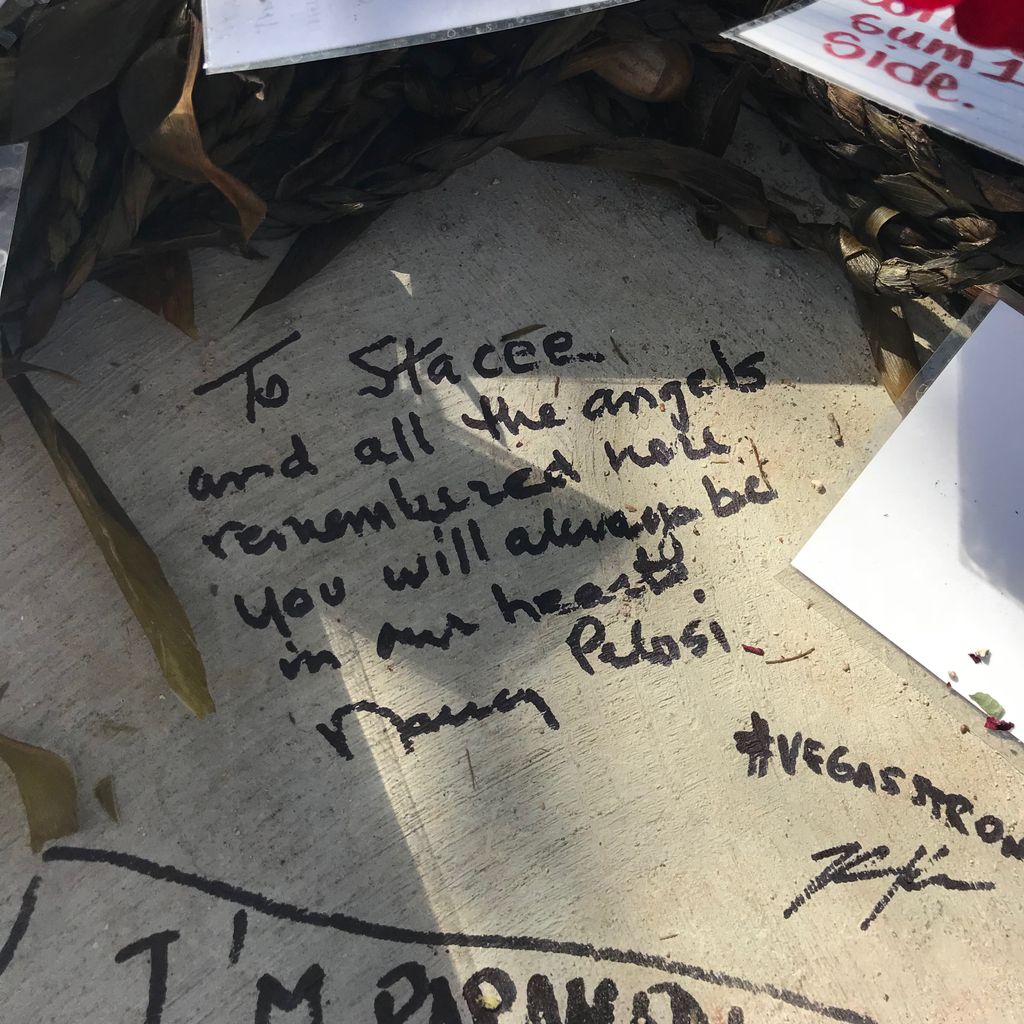 Gum 1
Side.
To Stacee
and all the angels
remembered here
you will always be
in our hearts.
Nancy Pelosi
#VEGASSTRON
I'M